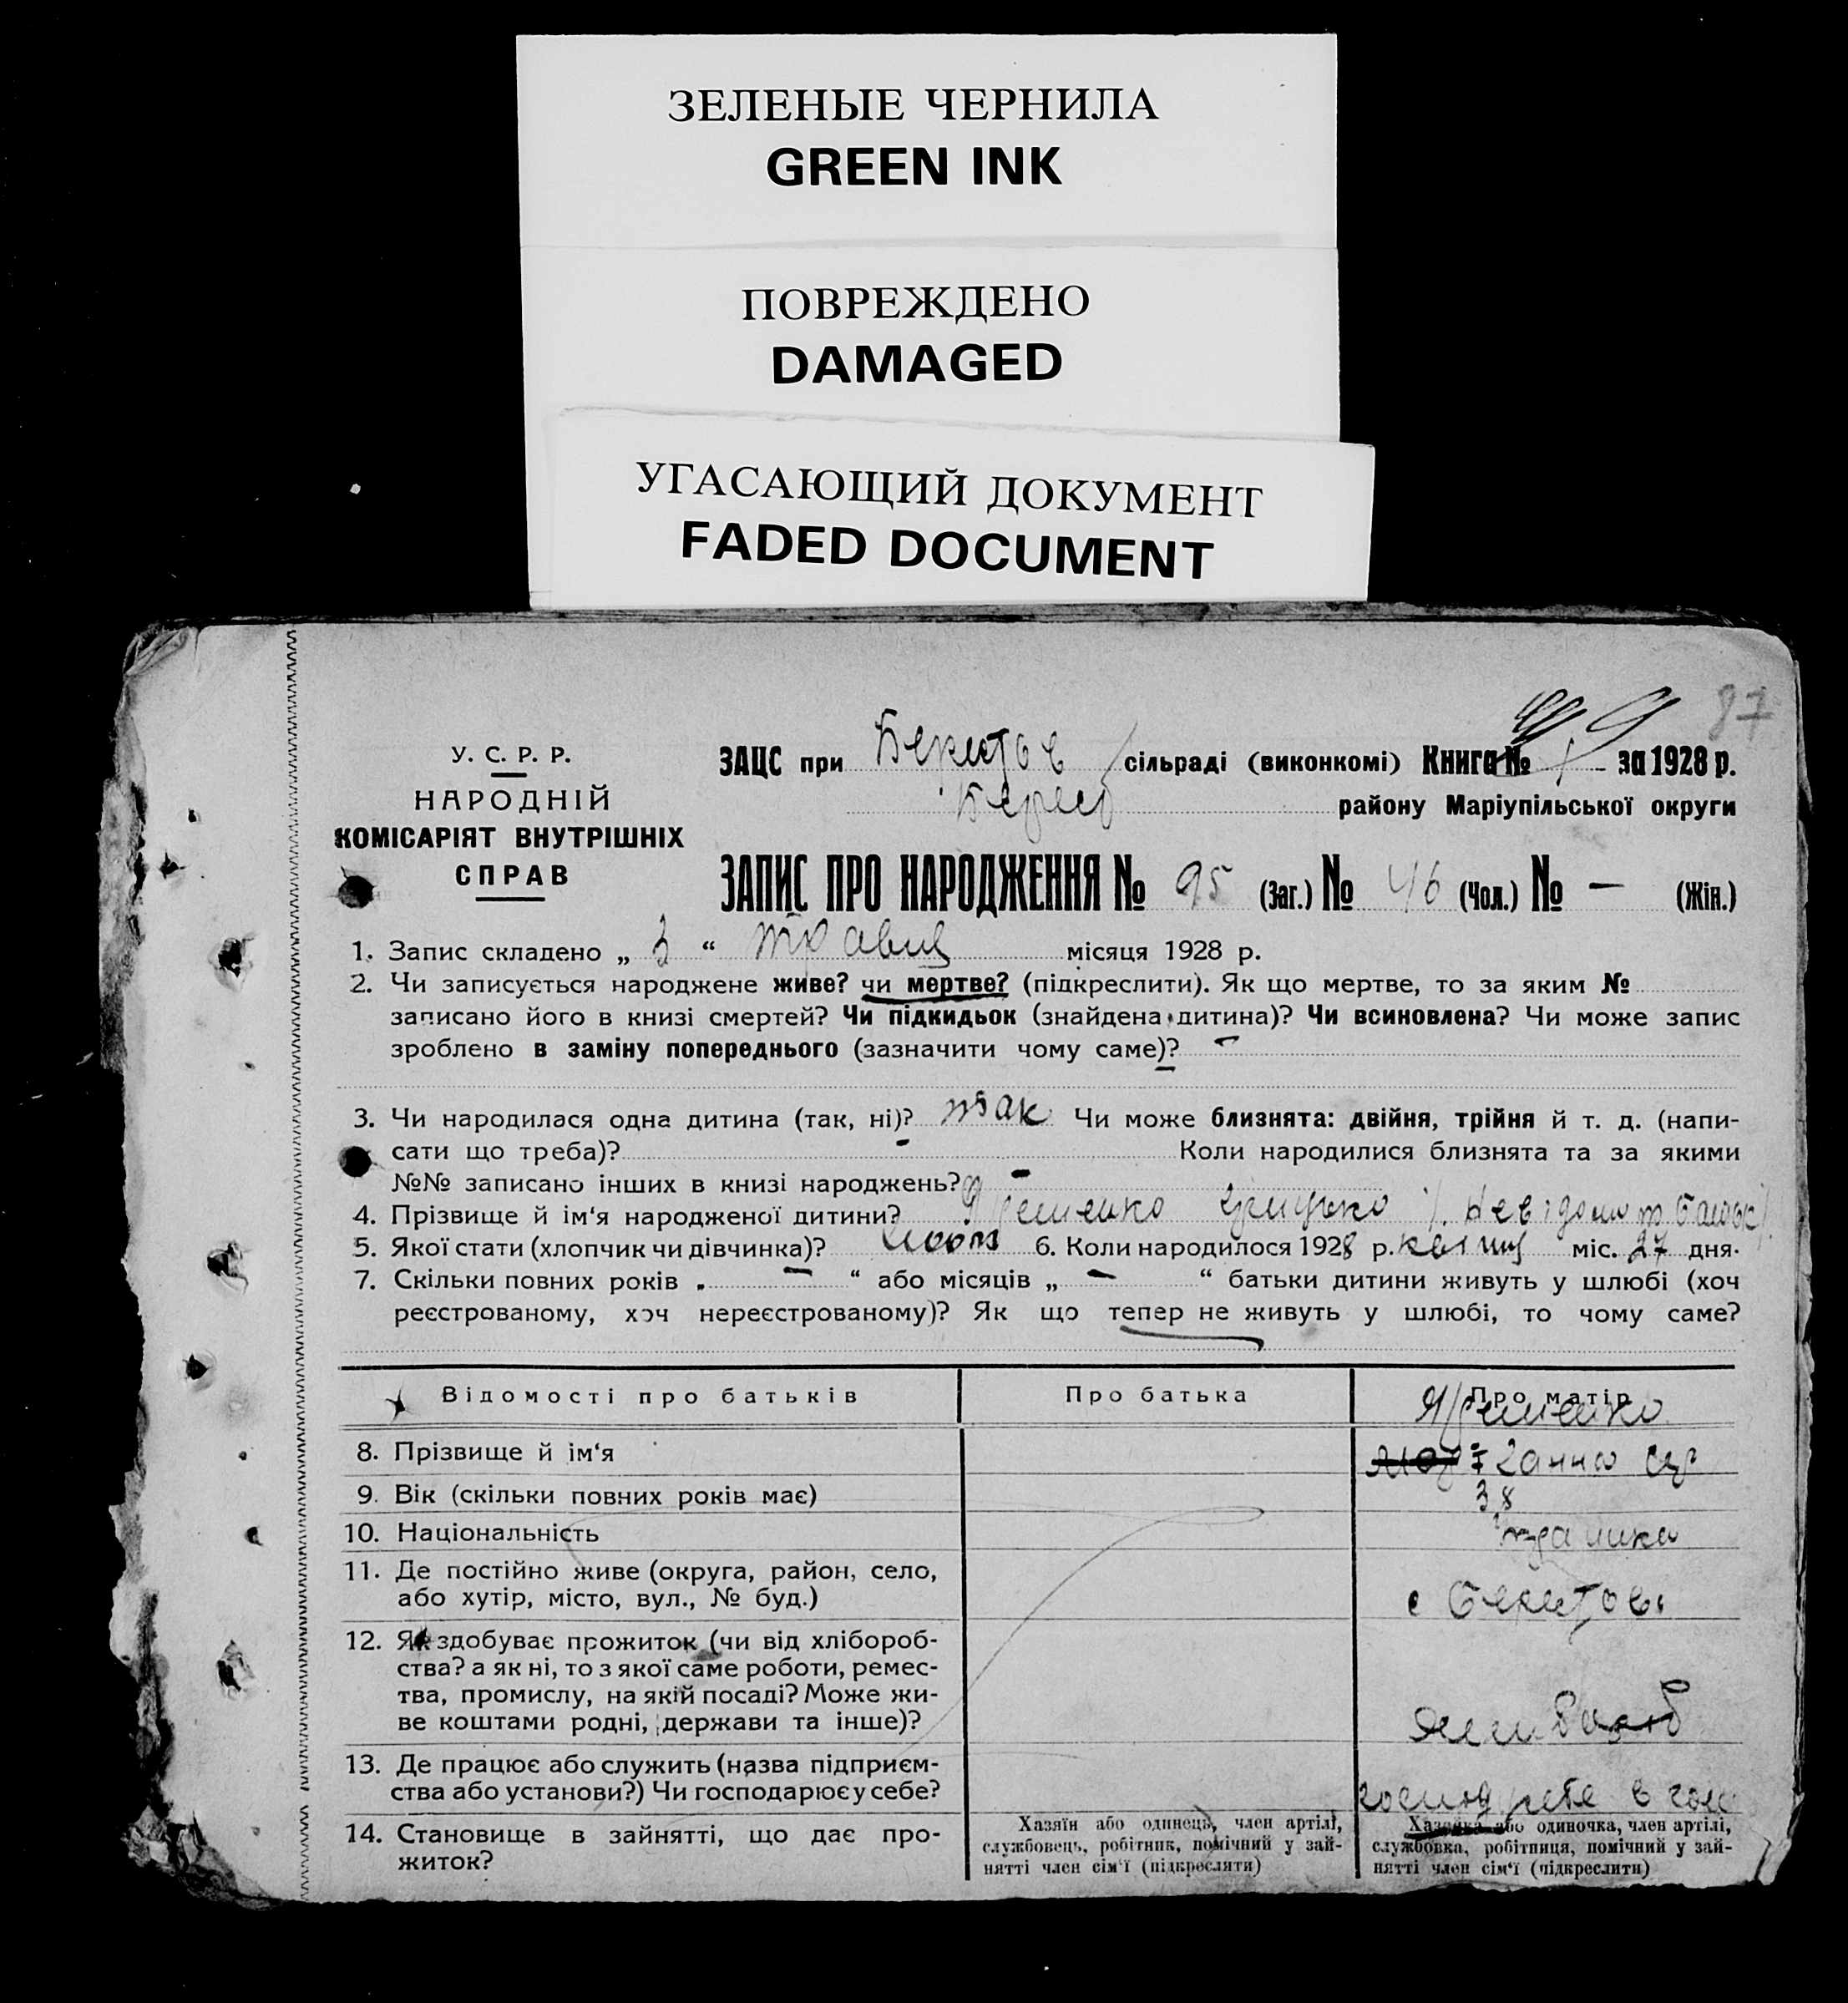 ЗЕЛЕНЫЕ ЧЕРНИЛА
GREEN INK
ПОВРЕЖДЕНО
DAMAGED
УГАСАЮЩИЙ ДОКУМЕНТ
FADED DOCUMENT
87
У. С. Р. Р.
НАРОДНІЙ
КОМІСАРІЯТ ВНУТРІШНІХ
СПРАВ
ЗАЦС при сільраді (виконкомі) Книга № 1 за 1928 р.
району Маріупільської округи
ЗАПИС ПРО НАРОДЖЕННЯ № 95 (Заг.) № 46 (Чол.) № — (Жін.)
1. Запис складено „ 3 “ травця місяця 1928 р.
2. Чи записується народжене живе? чи мертве? (підкреслити). Як що мертве, то за яким №
записано його в книзі смертей? Чи підкидьок (знайдена дитина)? Чи всиновлена? Чи може запис
зроблено в заміну попереднього (зазначити чому саме)? -
3. Чи народилася одна дитина (так, ні)? так Чи може близнята: двійня, трійня й т. д. (напи-
сати що треба)? - Коли народилися близнята та за якими
№№ записано інших в книзі народжень? -
4. Прізвище й ім'я народженої дитини? Яременко Грицько
5. Якої стати (хлопчик чи дівчинка)? 6. Коли народилося 1928 р. міс. 27 дня.
7. Скільки повних років „ — “ або місяців „ — “ батьки дитини живуть у шлюбі (хоч
реєстрованому, хоч нереєстрованому)? Як що тепер не живуть у шлюбі, то чому саме?
Відомості про батьків Про батька Про матір
Яременко
8. Прізвище й ім'я Ганна
9. Вік (скільки повних років має) 38
10. Національність
11. Де постійно живе (округа, район, село,
або хутір, місто, вул., № буд.)
12. Як здобуває прожиток (чи від хлібороб-
ства? а як ні, то з якої саме роботи, ремес-
тва, промислу, на якій посаді? Може жи-
ве коштами родні, держави та інше)?
13. Де працює або служить (назва підприєм-
ства або установи?) Чи господарює у себе?
14. Становище в зайнятті, що дає про-
житок?
Хазяїн або одинець, член артілі,
службовець, робітник, помічний у зай-
нятті член сім'ї (підкреслити)
Хазяйка або одиночка, член артілі,
службовка, робітниця, помічний у зай-
нятті член сім'ї (підкреслити)